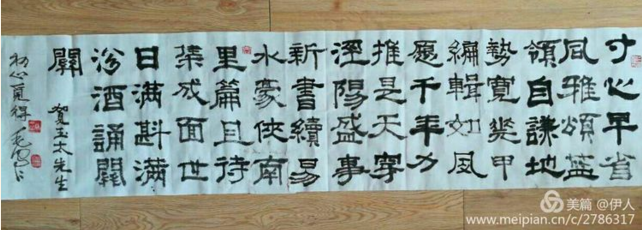 寸心早省
雅頌
領自謙地
勢寬幾甲
編輯如風
愿千年力
推是天
涇陽盛事
新書續易
水豪俠南
里篇且待
集成面世
日滿斟滿
汾酒誦關
關
賀玉太先生
初心
美篇 @伊人
www.meipian.cn/c/2786317